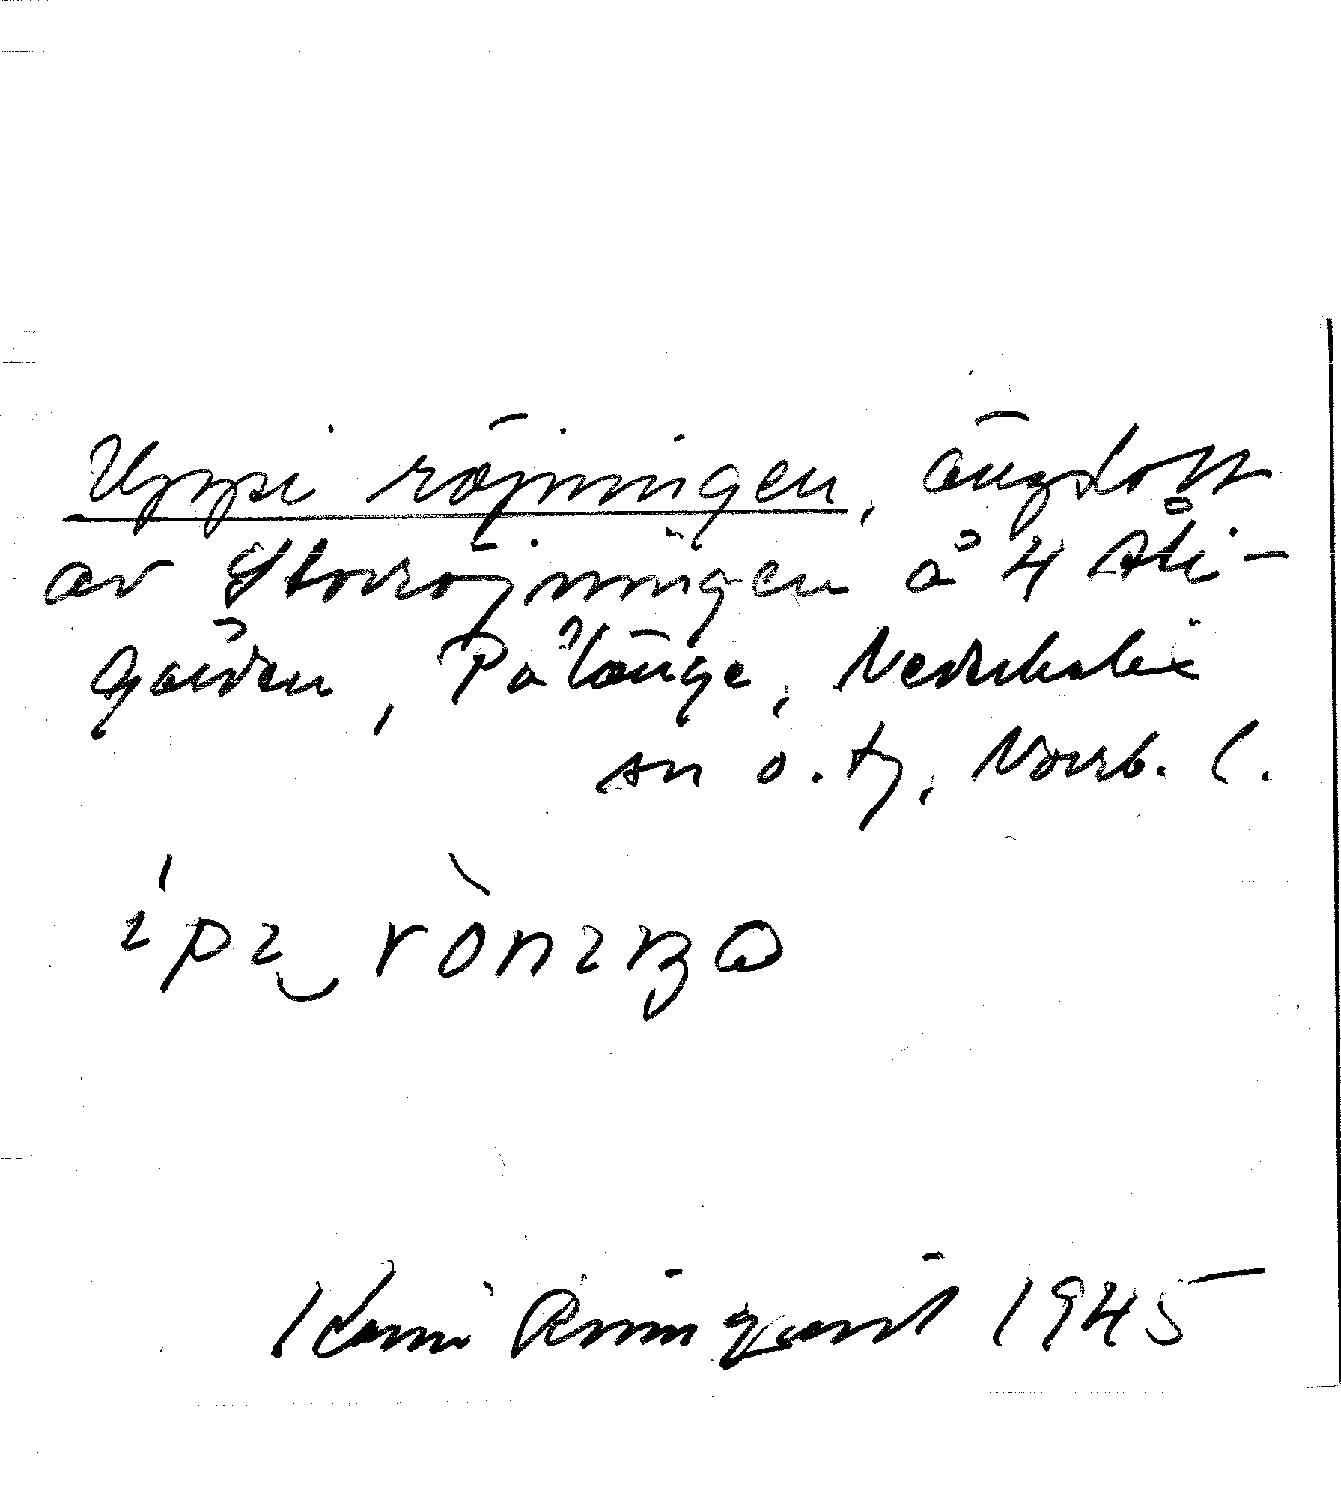 Uppi röjningen, ängslott
av Storröjningen å 4 Åli-
gården, Pålänge, Nederkalix
sn o. tg, Norrb. l.
ipı rònıŋa
Rimqvist 1945